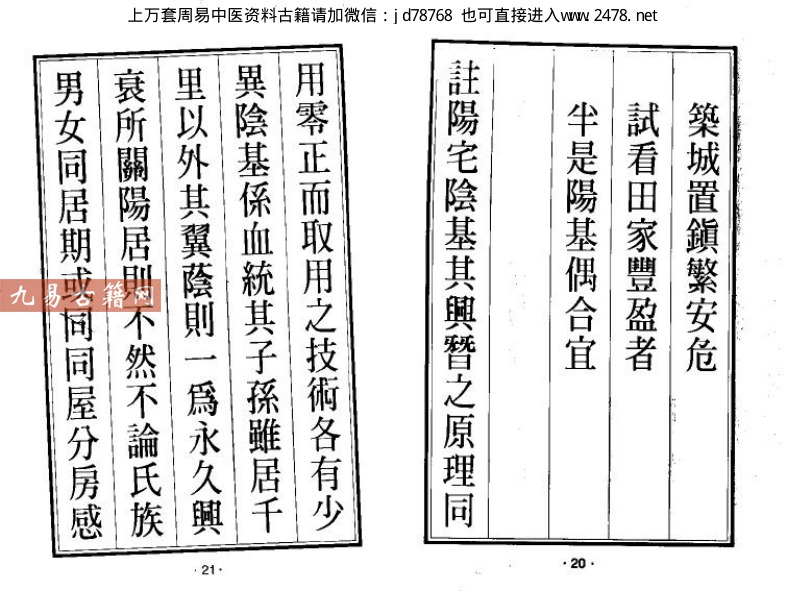 上万套周易中医资料古籍请加微信：jd78768 也可直接进入www.2478.net
築城置鎭繁安危
試看田家豐盈者
半是陽基偶合宜
註陽宅陰基其興朁之原理同
·20·
用零正而取用之技術各有少
異陰基係血統其子孫雖居千
里以外其翼蔭則一爲永久興
衰所關陽居則不然不論氏族
男女同居期或同同屋分房感
·21·
九易古籍网